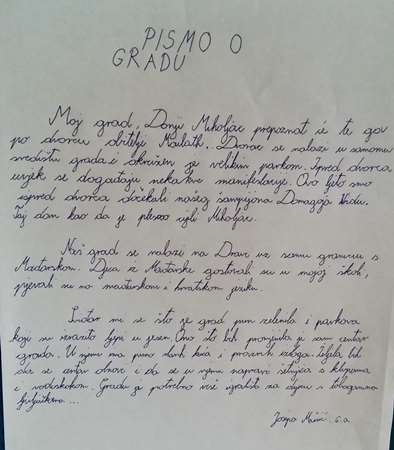 PISMO O
GRADU
Moj grad, Donji Miholjac prepoznat će te gov
po dvorcu obitelji Mailath. Dvorac se nalazi u samome
središtu grada i okružen je velikim parkom. Ispred dvorca
uvjek se događaju nekakve manifestacije. Ovo ljeto smo
ispred dvorca dočekali našeg šampijona Domagoja Vidu.
Taj dan kao da je plesao cijeli Miholjac.
Naš grad se nalazi na Dravi uz samu granicu s
Mađarskom. Djeca iz Mađarske gostovali su u mojoj školi,
pjevali su na mađarskom i hrvatskom jeziku.
mi se što je grad pun zelenila i parkova
koji su izrazito lijepi u jesen. Ono što bih promjenila je sam centar
grada. U njemu ima puno starih kuća i praznih izloga. Željela bih
da se centar obnovi i da se u njemu napravi šetnica s klupama
i vodoskokom. Gradu je potrebno veće igralište za djecu s toboganima
ljuljačkama...
Josipa 6.a